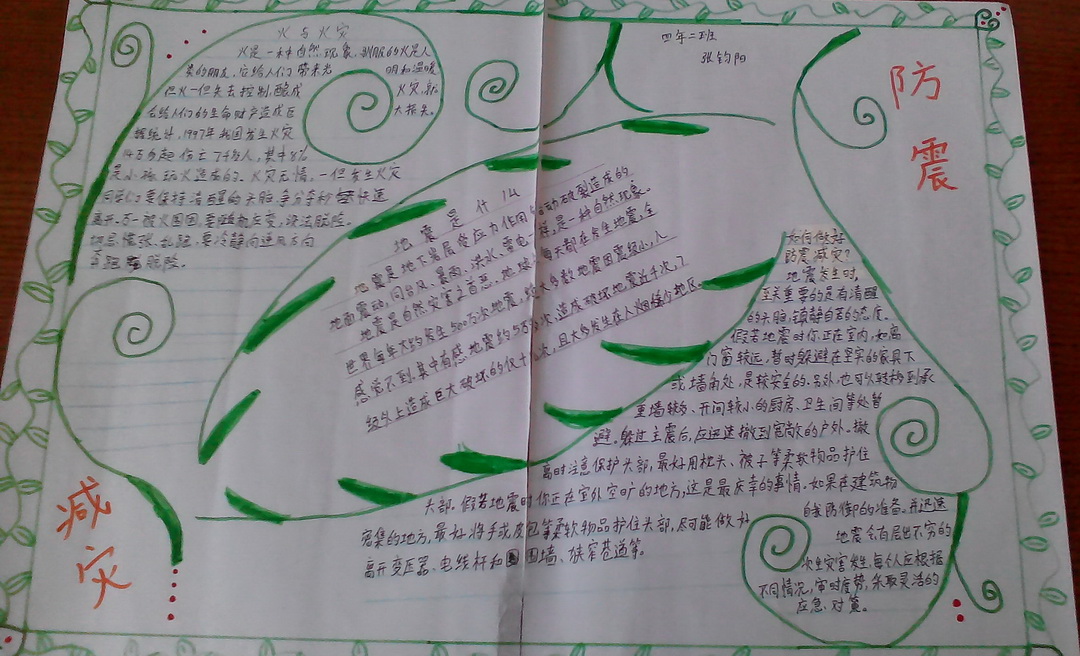 火与火灾
火是一种自然现象,驯服的火是人
类的朋友,它给人们带来光明和温暖
但火一但失去控制,酿成火灾,就
会给人们的生命财产造成巨大损失。
据统计,1997年我国发生火灾
14万多起伤亡
是小孩玩火造成的。火灾无情,一但发生火灾
同学们要保持清醒的头脑,争分夺秒快速
离开。万一被火围困,要随机应变,设法脱险。
切忌慌张、乱跑,要冷静向逆风方向
奔跑脱险。
四年二班
张钧阳
防震
减灾
地震是什么
地震是地下岩层受应力作用错动破裂造成的
地面震动,同台风、暴雨、洪水、雷电一样,是一种自然现象。
地震是自然灾害之首恶,地球每天都在发生地震,全
世界每年大约发生500万次地震,绝大多数地震因震级小,人
感觉不到。其中有感地震约5万多次,造成破坏地震近千次,7
级以上造成巨大破坏的仅十几次,且大多发生在人烟稀少地区。
如何做好
防震减灾?
地震发生时,
至关重要的是有清醒
的头脑,镇静自若的态度。
假若地震时你正在室内,如离
门窗较远,暂时躲避在坚实的家具下
或墙角处,是较安全的。另外,也可转移到承
重墙较多、开间较小的厨房、卫生间等处暂
避。躲过主震后,应迅速撤到宽敞的户外。撤
离时注意保护头部,最好用枕头、被子等柔软物品护住
头部。假若地震时你正在室外空旷的地方,这是最庆幸的事情。如果在建筑物
密集的地方,最好将手或皮包等柔软物品护住头部,尽可能做好
自我防御的准备。并迅速
离开变压器、电线杆和围墙、狭窄巷道等。
地震会有层出不穷的
次生灾害发生,每个人应根据
不同情况,审时度势,采取灵活的
应急对策。